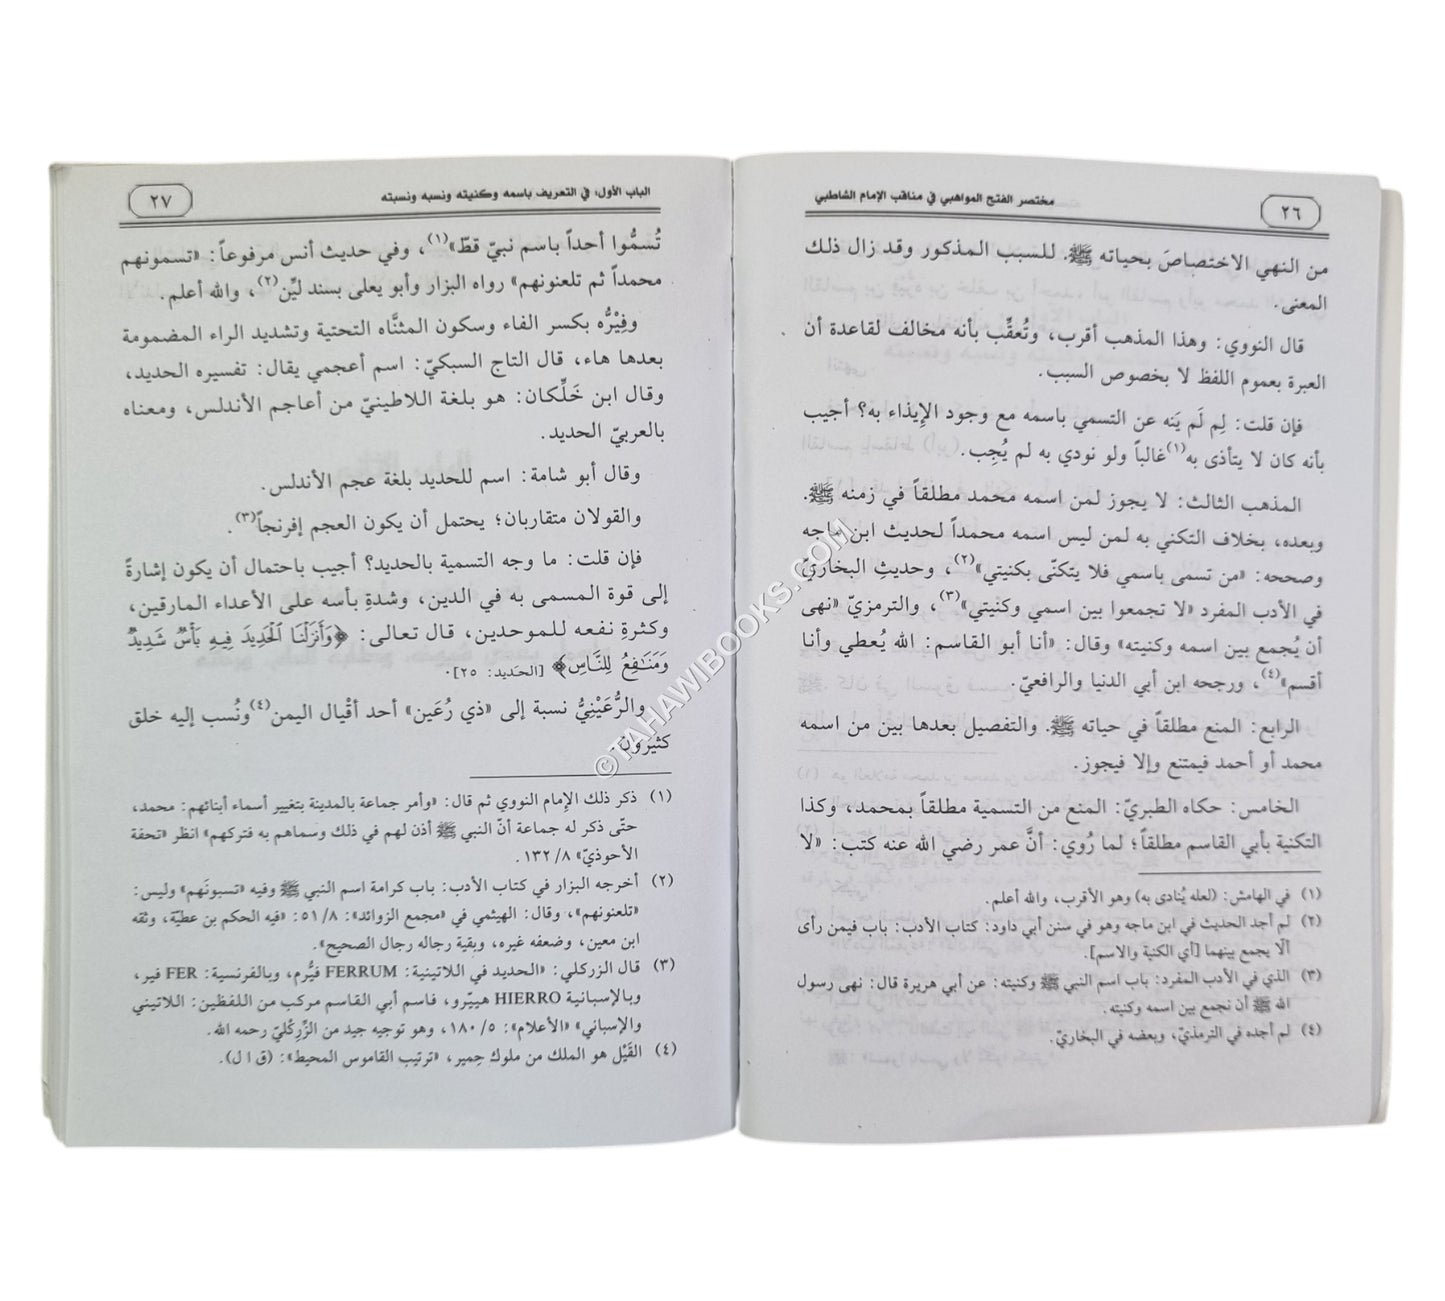 مختصر الفتح المواهبي في مناقب الإمام الشاطبي
٢٦
من النهي الاختصاصَ بحياته ﷺ. للسبب المذكور وقد زال ذلك
المعنى.
قال النووي: وهذا المذهب أقرب، وتُعقِّب بأنه مخالف لقاعدة أن
العبرة بعموم اللفظ لا بخصوص السبب.
فإن قلت: لِم لَم يَنه عن التسمي باسمه مع وجود الإيذاء به؟ أجيب
بأنه كان لا يتأذى به(١) غالباً ولو نودي به لم يُجِب.
المذهب الثالث: لا يجوز لمن اسمه محمد مطلقاً في زمنه ﷺ.
وبعده، بخلاف التكني به لمن ليس اسمه محمداً لحديث ابن ماجه
وصححه: «من تسمى باسمي فلا يتكنّى بكنيتي»(٢)، وحديثِ البخاريّ
في الأدب المفرد «لا تجمعوا بين اسمي وكنيتي»(٣)، والترمزيّ «نهى
أن يُجمع بين اسمه وكنيته» وقال: «أنا أبو القاسم: الله يُعطي وأنا
أقسم»(٤)، ورجحه ابن أبي الدنيا والرافعيّ.
الرابع: المنع مطلقاً في حياته ﷺ. والتفصيل بعدها بين من اسمه
محمد أو أحمد فيمتنع وإلا فيجوز.
الخامس: حكاه الطبريّ: المنع من التسمية مطلقاً بمحمد، وكذا
التكنية بأبي القاسم مطلقاً؛ لما رُوي: أنَّ عمر رضي الله عنه كتب: «لا
(١) في الهامش: (لعله يُنادى به) وهو الأقرب، والله أعلم.
(٢) لم أجد الحديث في ابن ماجه وهو في سنن أبي داود: كتاب الأدب: باب فيمن رأى
ألّا يجمع بينهما [أي الكنية والاسم].
(٣) الذي في الأدب المفرد: باب اسم النبي ﷺ وكنيته: عن أبي هريرة قال: نهى رسول
الله ﷺ أن نجمع بين اسمه وكنيته.
(٤) لم أجده في الترمذيّ، وبعضه في البخاريّ.
الباب الأول: في التعريف باسمه وكنيته ونسبه ونسبته
٢٧
تُسمُّوا أحداً باسم نبيّ قطّ»(١)، وفي حديث أنس مرفوعاً: «تسمونهم
محمداً ثم تلعنونهم» رواه البزار وأبو يعلى بسند ليِّن(٢)، والله أعلم.
وفِيْرُّه بكسر الفاء وسكون المثنَّاه التحتية وتشديد الراء المضمومة
بعدها هاء، قال التاج السبكيّ: اسم أعجمي يقال: تفسيره الحديد،
وقال ابن خَلِّكان: هو بلغة اللاطينيّ من أعاجم الأندلس، ومعناه
بالعربيّ الحديد.
وقال أبو شامة: اسم للحديد بلغة عجم الأندلس.
والقولان متقاربان؛ يحتمل أن يكون العجم إفرنجاً(٣).
فإن قلت: ما وجه التسمية بالحديد؟ أجيب باحتمال أن يكون إشارةً
إلى قوة المسمى به في الدين، وشدةِ بأسه على الأعداء المارقين،
وكثرةِ نفعه للموحدين، قال تعالى: ﴿وَأَنزَلْنَا الْحَدِيدَ فِيهِ بَأْسٌ شَدِيدٌ
وَمَنَافِعُ لِلنَّاسِ﴾ [الحديد: ٢٥].
والرُّعَيْنِيُّ نسبة إلى «ذي رُعَين» أحد أقْيال اليمن(٤) ونُسب إليه خلق
كثيرون.
(١) ذكر ذلك الإمام النووي ثم قال: «وأمر جماعة بالمدينة بتغيير أسماء أبنائهم: محمد،
حتّى ذكر له جماعة أنّ النبي ﷺ أذن لهم في ذلك وسماهم به فتركهم» انظر «تحفة
الأحوذيّ» ٨/ ١٣٢.
(٢) أخرجه البزار في كتاب الأدب: باب كرامة اسم النبي ﷺ وفيه «تسبونَهم» وليس:
«تلعنونهم»، وقال: الهيثمي في «مجمع الزوائد»: ٨/ ٥١: «فيه الحكم بن عطيّة، وثقه
ابن معين، وضعفه غيره، وبقية رجاله رجال الصحيح».
(٣) قال الزركلي: «الحديد في اللاتينية: FERRUM فيُّرم، وبالفرنسية: FER فير،
وبالإسبانية HIERRO هييّرو، فاسم أبي القاسم مركب من اللفظين: اللاتيني
والإسباني» «الأعلام»: ٥/ ١٨٠، وهو توجيه جيد من الزِّرِكْليّ رحمه الله.
(٤) القَيْل هو الملك من ملوك حِمير، «ترتيب القاموس المحيط»: (ق ا ل).
©TAHAWIBOOKS.COM